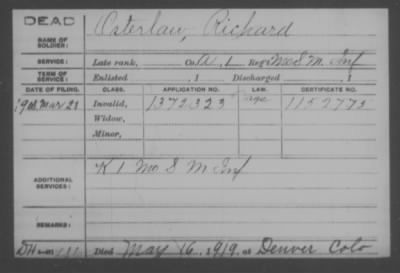 DEAD
NAME OF SOLDIER: Osterlaw, Richard
SERVICE: Late rank, Co. A, 1 Reg't Mo S M Inf
TERM OF SERVICE: Enlisted , 1 Discharged , 1
DATE OF FILING. CLASS. APPLICATION NO. LAW. CERTIFICATE NO.
Mar 21 Invalid, 1372323 age 1152773
Widow,
Minor,
ADDITIONAL SERVICES: K 1 Mo S M Inf
REMARKS:
Died May 16, 1919, at Denver Colo